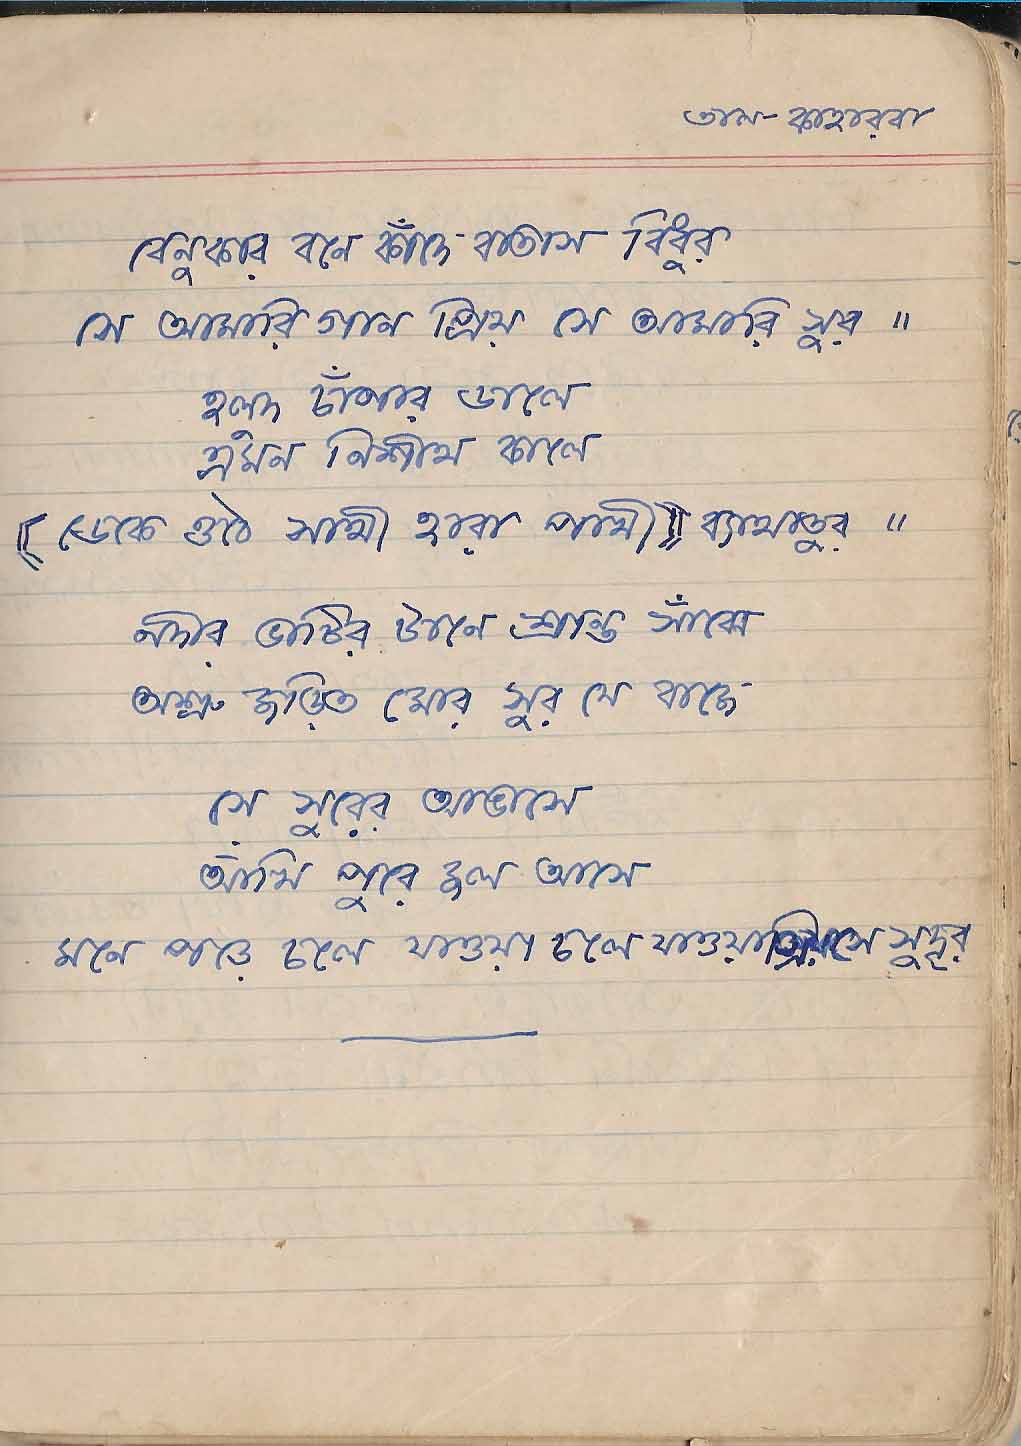 তাল- কাহারবা
বেনুকার বনে কাঁদে বাতাস বিধুর
সে আমারি গান প্রিয় সে আমারি সুর ॥
হলুদ চাঁপার ডালে
এমন নিশীথ কালে
ডেকে ওঠে সাথী হারা পাখী ব্যাথাতুর ॥
নদীর ভাটির টানে শ্রান্ত সাঁঝে
অশ্রু জড়িত মোর সুর যে বাজে
সে সুরের আভাসে
আঁখি পুরে জল আসে
মনে পড়ে চলে যাওয়া চলে যাওয়া প্রিয় সে সুদূর